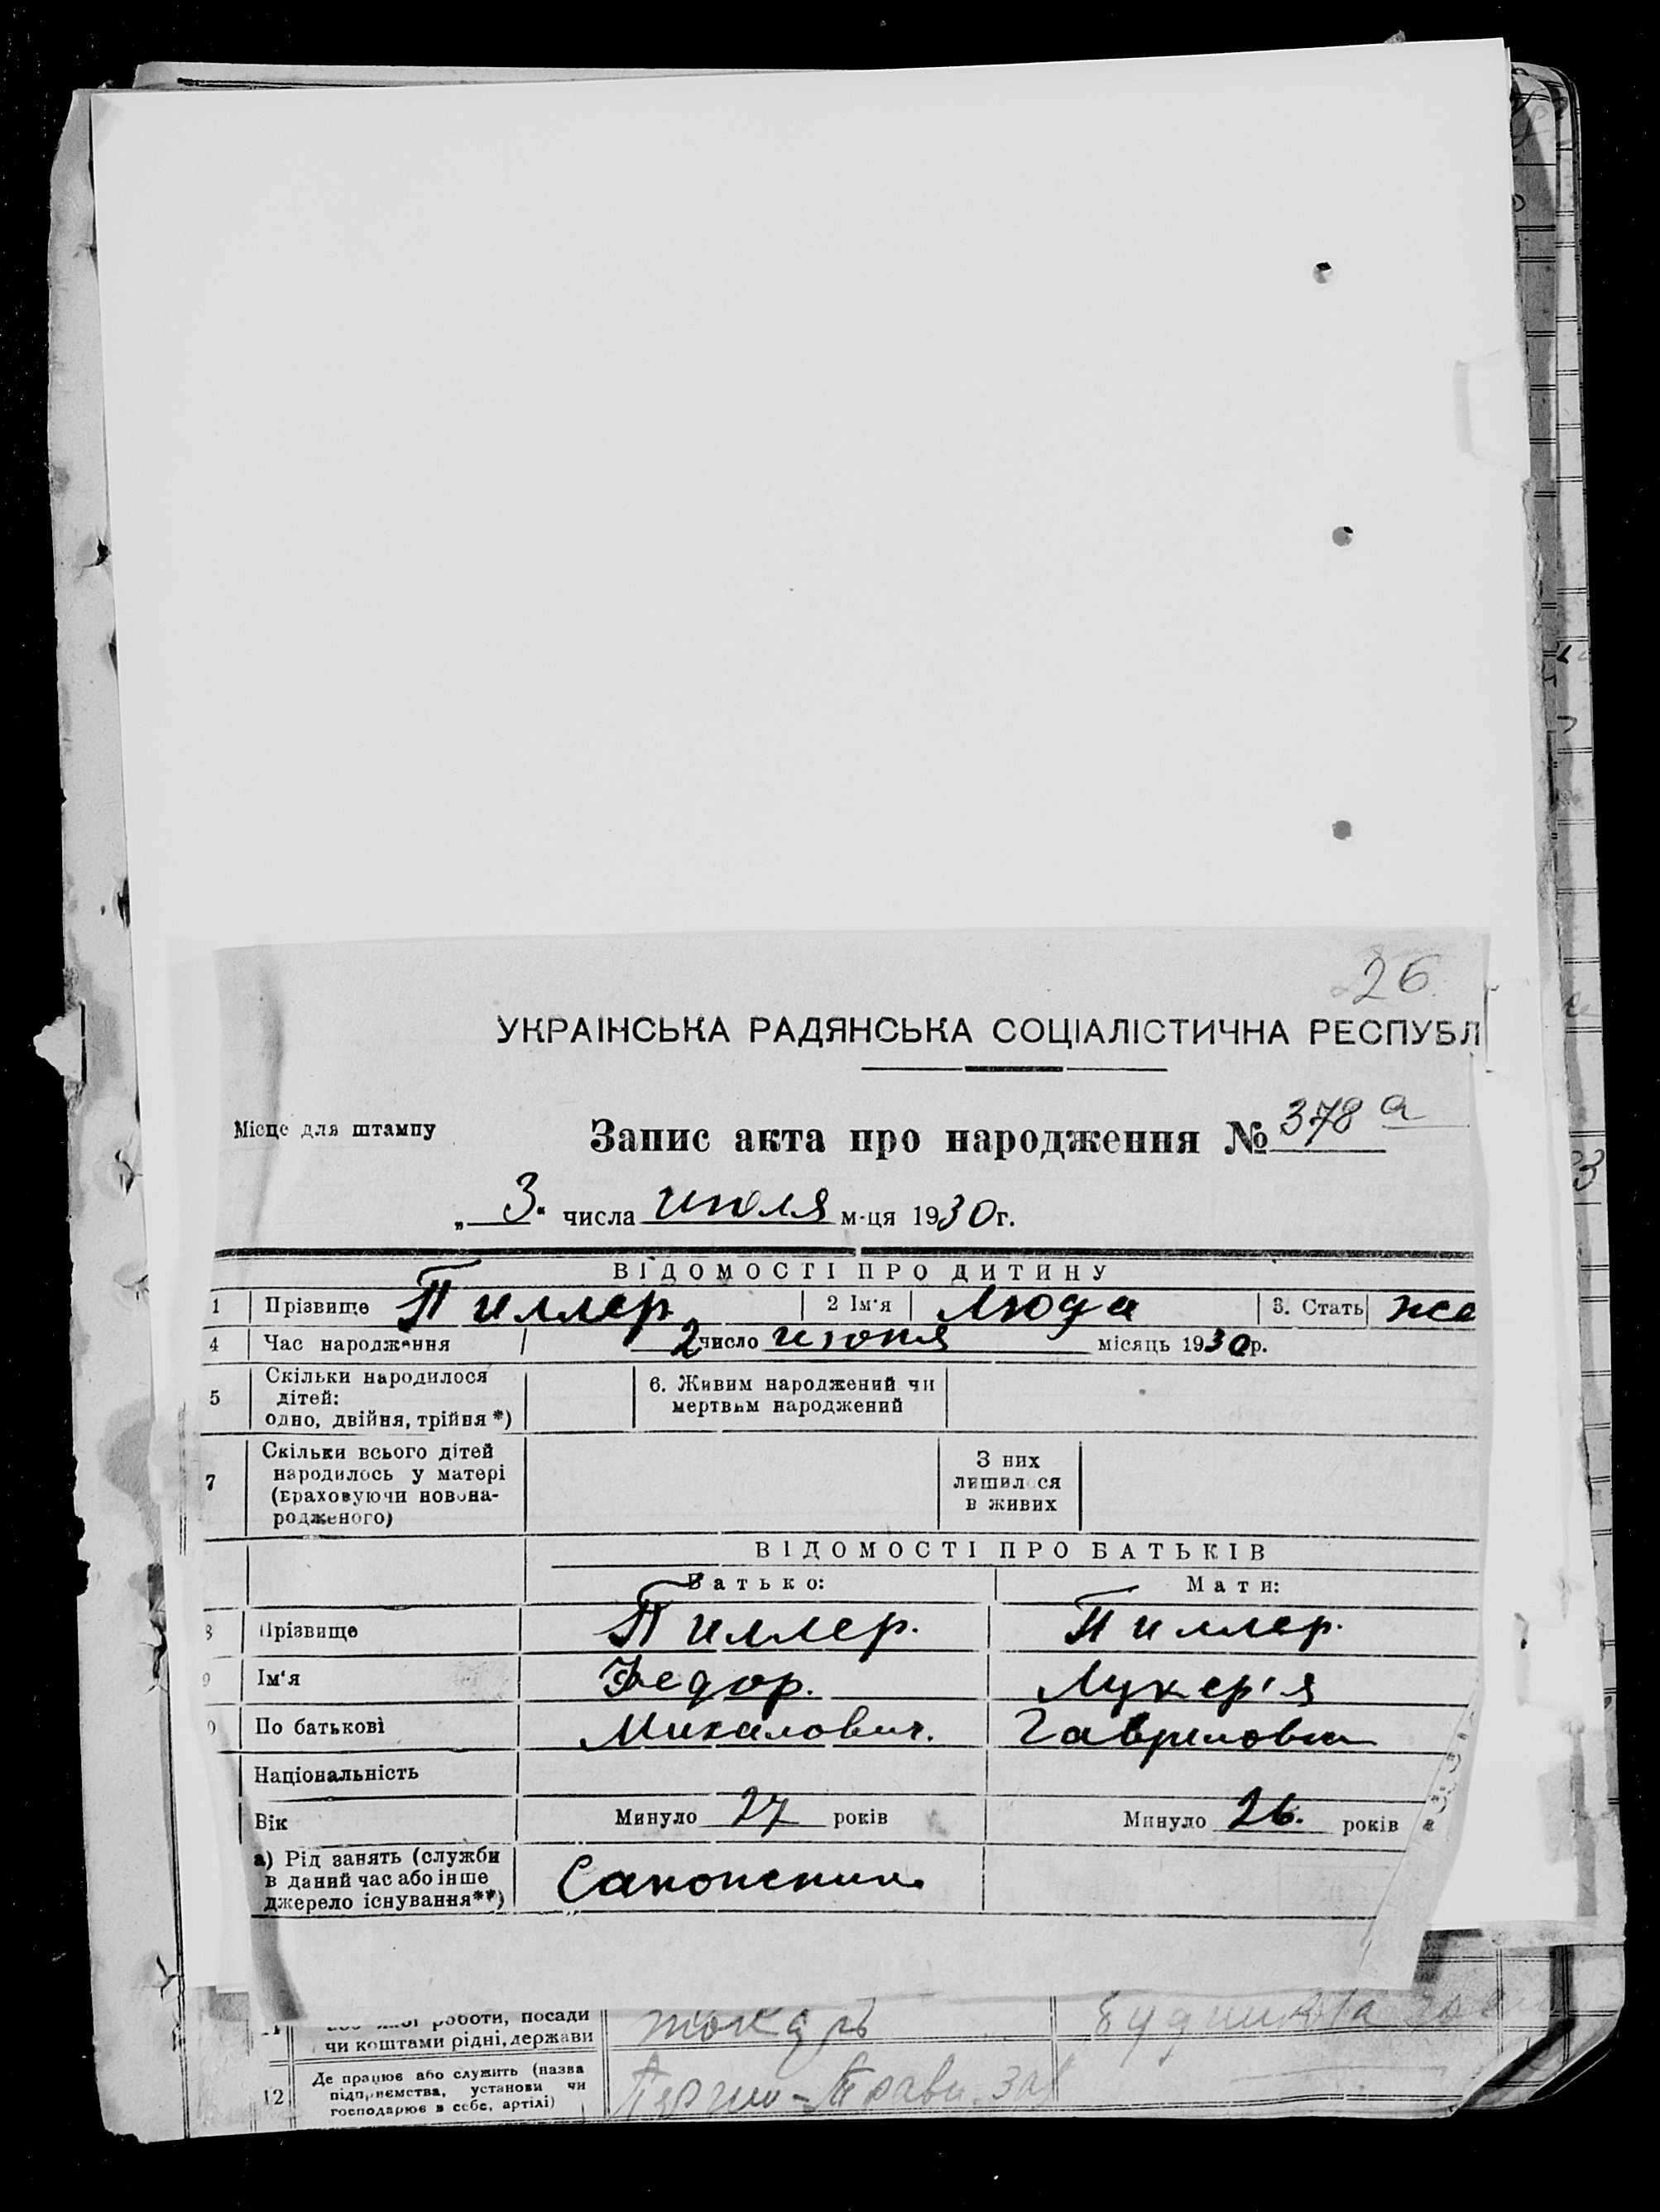 26
УКРАЇНСЬКА РАДЯНСЬКА СОЦІАЛІСТИЧНА РЕСПУБЛ
Місце для штампу
Запис акта про народження № 378 а
„ 3 “ числа июля м-ця 1930 г.
ВІДОМОСТІ ПРО ДИТИНУ
1 Прізвище Пиллер 2 Ім'я Люда 3. Стать же
4 Час народження 2 число июня місяць 1930 р.
5 Скільки народилося дітей: одно, двійня, трійня *) 6. Живим народжений чи мертвим народжений
7 Скільки всього дітей народилось у матері (враховуючи новона-родженого) З них лишилося в живих
ВІДОМОСТІ ПРО БАТЬКІВ
Батько: Мати:
8 Прізвище Пиллер. Пиллер.
9 Ім'я Федор. Лукер'я
0 По батькові Михалович. Гавриловна
Національність
Вік Минуло 27 років Минуло 26. років
а) Рід занять (служби в даний час або інше джерело існування**)
роботи, посади токарь
чи коштами рідні, держави
12 Де працює або служить (назва підприємства, установи чи господарює в себе, артілі)